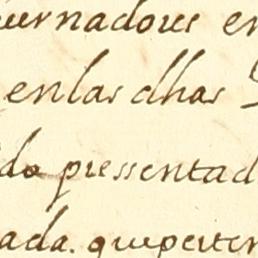 uernadores en
en las dhas
do pressentad
ada. que perten